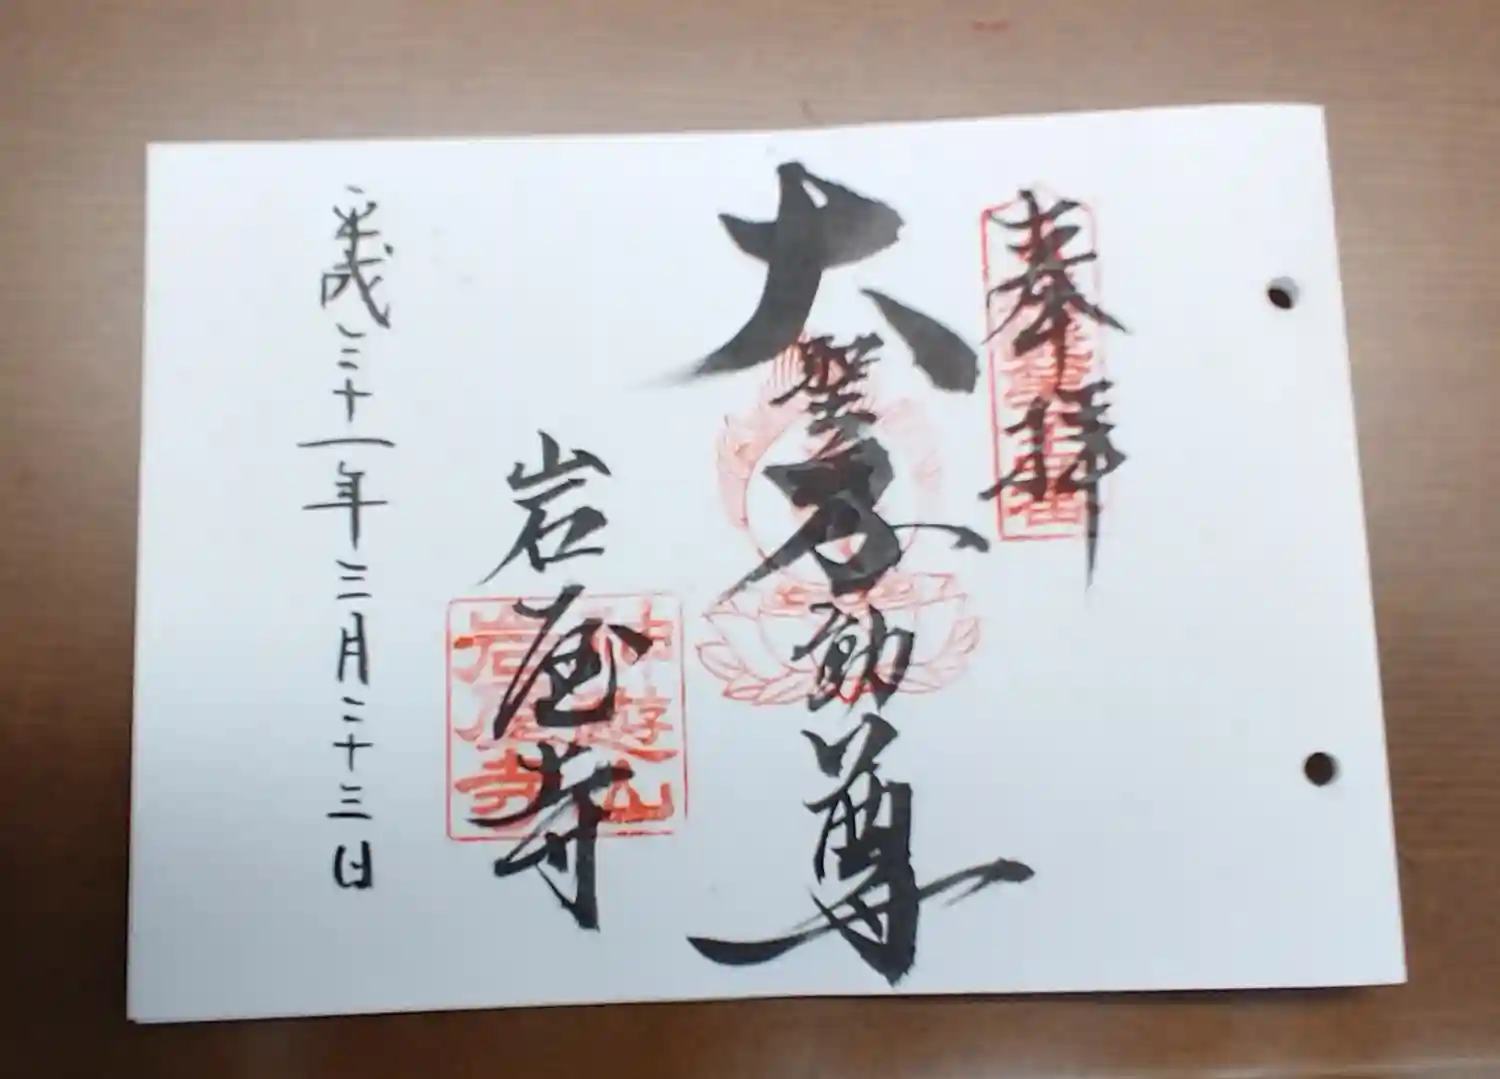 奉拝
大聖不動尊
岩屋寺
神遊山
岩屋寺
平成三十一年三月二十三日